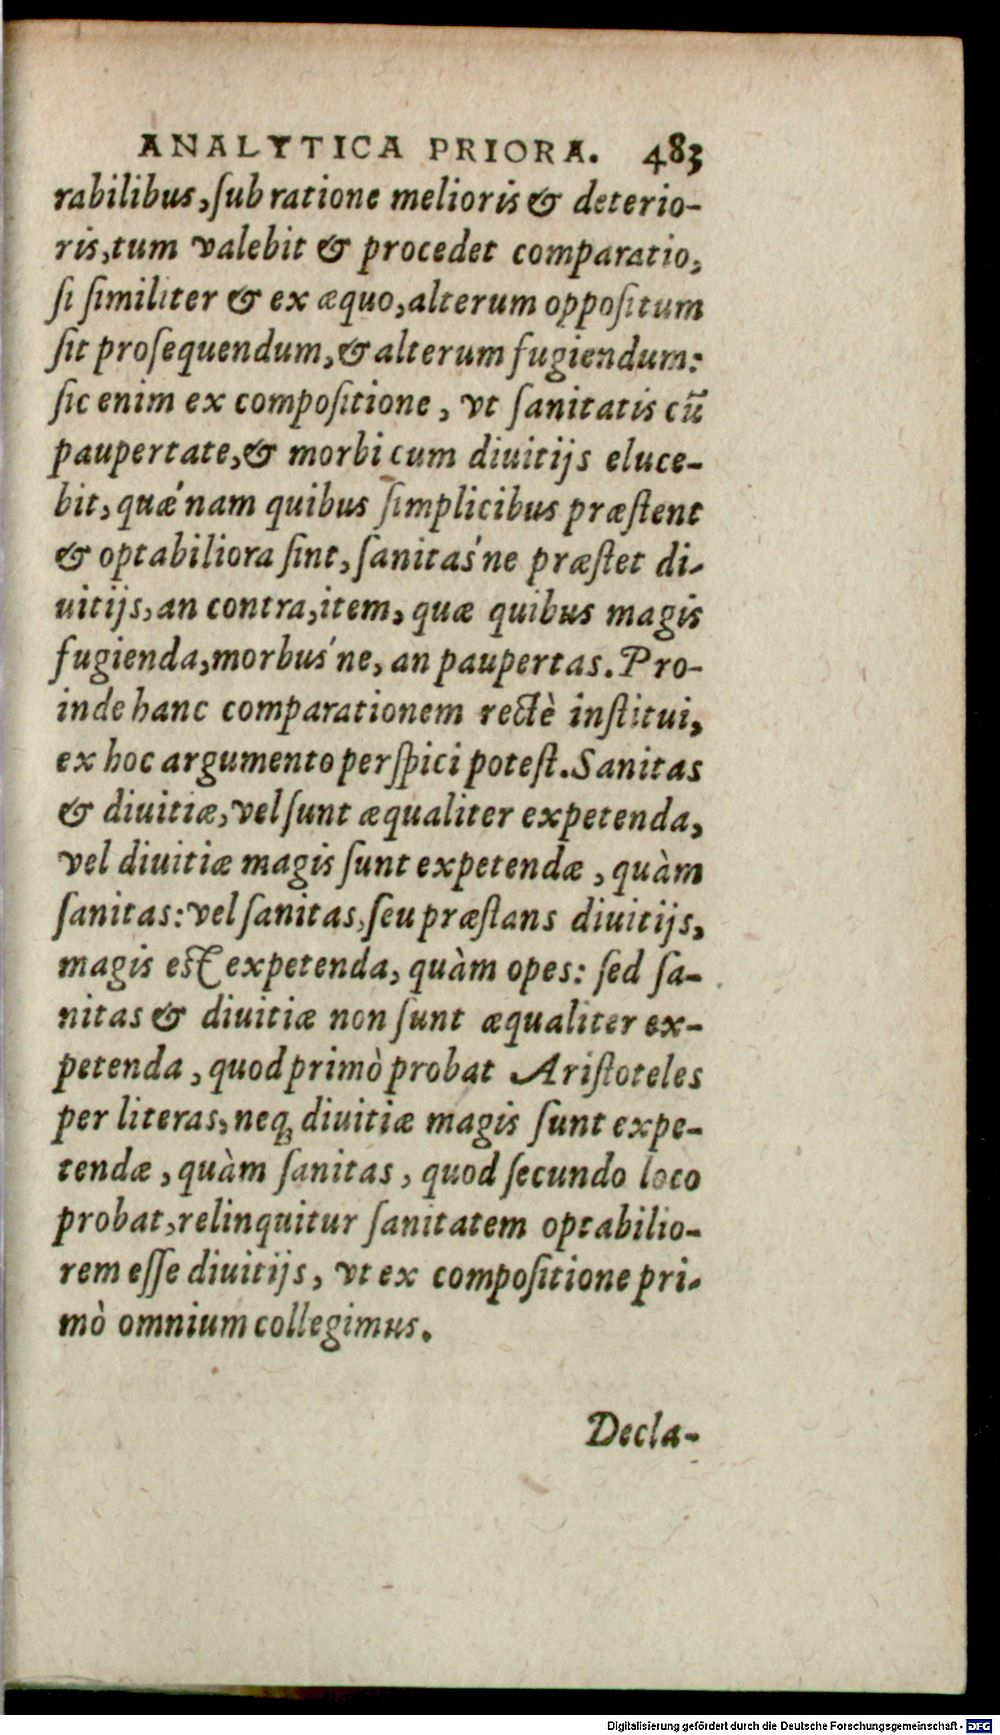 ANALYTICA PRIORA. 483
rabilibus, ſub ratione melioris & deterio-
ris, tum valebit & procedet comparatio,
ſi ſimiliter & ex æquo, alterum oppoſitum
ſit proſequendum, & alterum fugiendum:
ſic enim ex compoſitione, vt ſanitatis cū
paupertate, & morbi cum diuitijs eluce-
bit, quæ'nam quibus ſimplicibus præſtent
& optabiliora ſint, ſanitas'ne præſtet di-
uitijs, an contra, item, quæ quibus magis
fugienda, morbus'ne, an paupertas. Pro-
inde hanc comparationem rectè inſtitui,
ex hoc argumento perſpici poteſt. Sanitas
& diuitiæ, vel ſunt æqualiter expetenda,
vel diuitiæ magis ſunt expetendæ, quàm
ſanitas: vel ſanitas, ſeu præſtans diuitijs,
magis eſt expetenda, quàm opes: ſed ſa-
nitas & diuitiæ non ſunt æqualiter ex-
petenda, quod primò probat Ariſtoteles
per literas, neq; diuitiæ magis ſunt expe-
tendæ, quàm ſanitas, quod ſecundo loco
probat, relinquitur ſanitatem optabilio-
rem eſſe diuitijs, vt ex compoſitione pri-
mò omnium collegimus.
Decla-
Digitalisierung gefördert durch die Deutsche Forschungsgemeinschaft - DFG